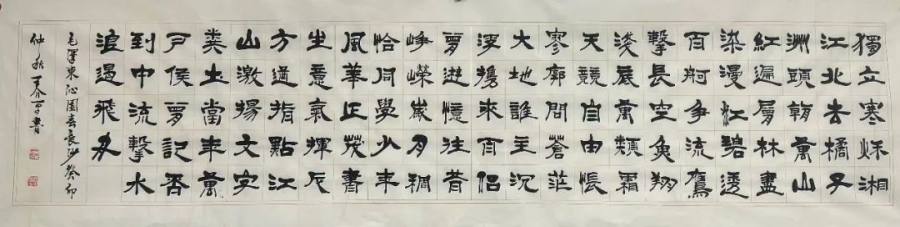 獨立寒秌湘
江北去橘子
洲頭看萬山
紅遍層林盡
染漫江碧透
百舸爭流鷹
擊長空魚翔
淺底萬類霜
天競自由悵
寥廓問蒼茫
大地誰主沉
浮攜來百侶
曾遊憶往昔
崢嶸歲月稠
恰同學少年
風華正茂書
生意氣揮斥
方遒指點江
山激揚文字
糞土當年萬
戶侯曾記否
到中流擊水
浪遏飛舟
毛澤東沁園春長沙癸卯
仲秋書